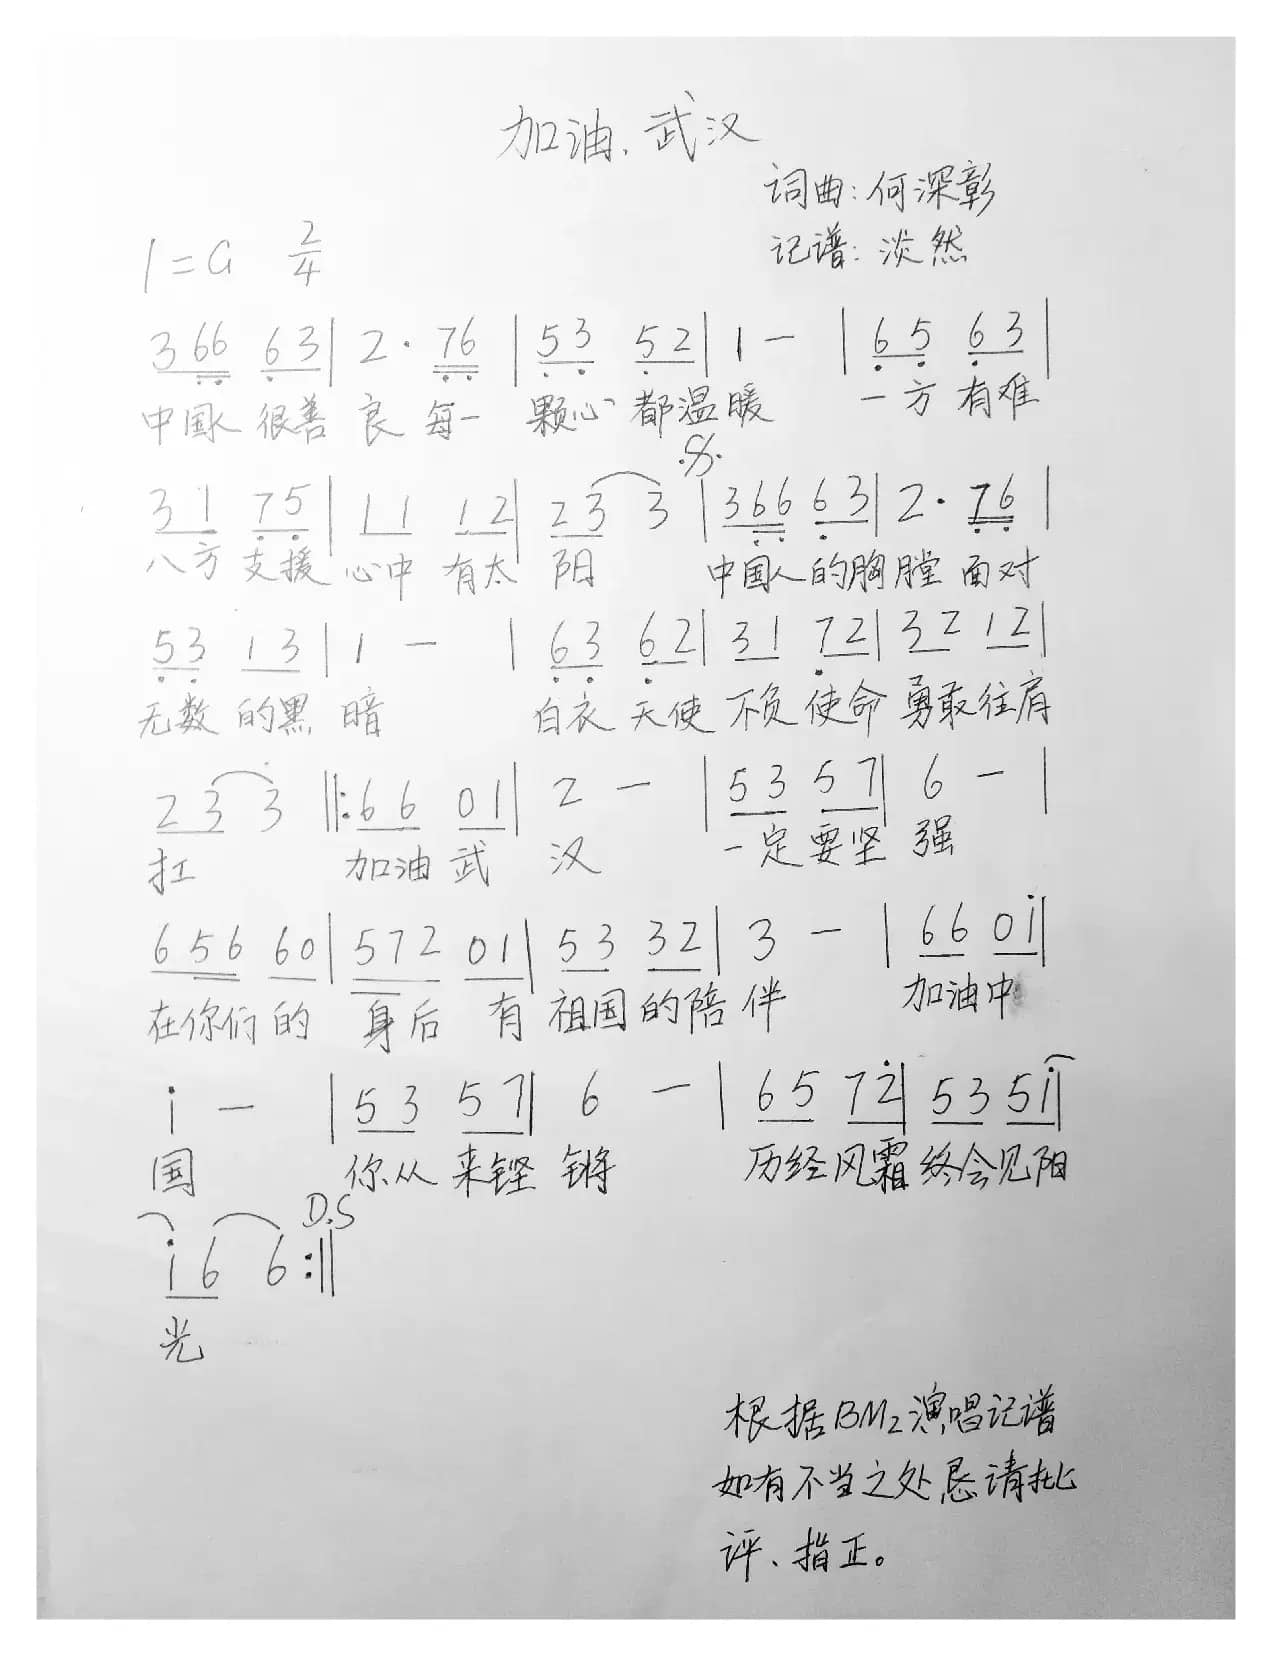 加油、武汉
词曲:何深彰
记谱:淡然
1=G 2/4
3 6 6 6 3 | 2 · 7 6 | 5 3 5 2 | 1 - | 6 5 6 3 |
中国人 很善 良 每一 颗心 都温 暖 一方 有难
3 1 7 5 | 1 1 1 2 | 2 3 3 | 3 6 6 6 3 | 2 · 7 6 |
八方 支援 心中 有太 阳 中国人 的胸 膛 面对
5 3 1 3 | 1 - | 6 3 6 2 | 3 1 7 2 | 3 2 1 2 |
无数 的黑 暗 白衣 天使 不负 使命 勇敢 往肩
2 3 3 ‖: 6 6 0 1 | 2 - | 5 3 5 7 | 6 - |
扛 加油 武 汉 一定 要坚 强
6 5 6 6 0 | 5 7 2 0 1 | 5 3 3 2 | 3 - | 6 6 0 i |
在你们 的 身后 有 祖国 的陪 伴 加油 中
i - | 5 3 5 7 | 6 - | 6 5 7 2 | 5 3 5 i |
国 你从 来铿 锵 历经 风霜 终会 见阳
D.S
i 6 6 :‖
光
根据BM2演唱记谱
如有不当之处恳请批
评、指正。